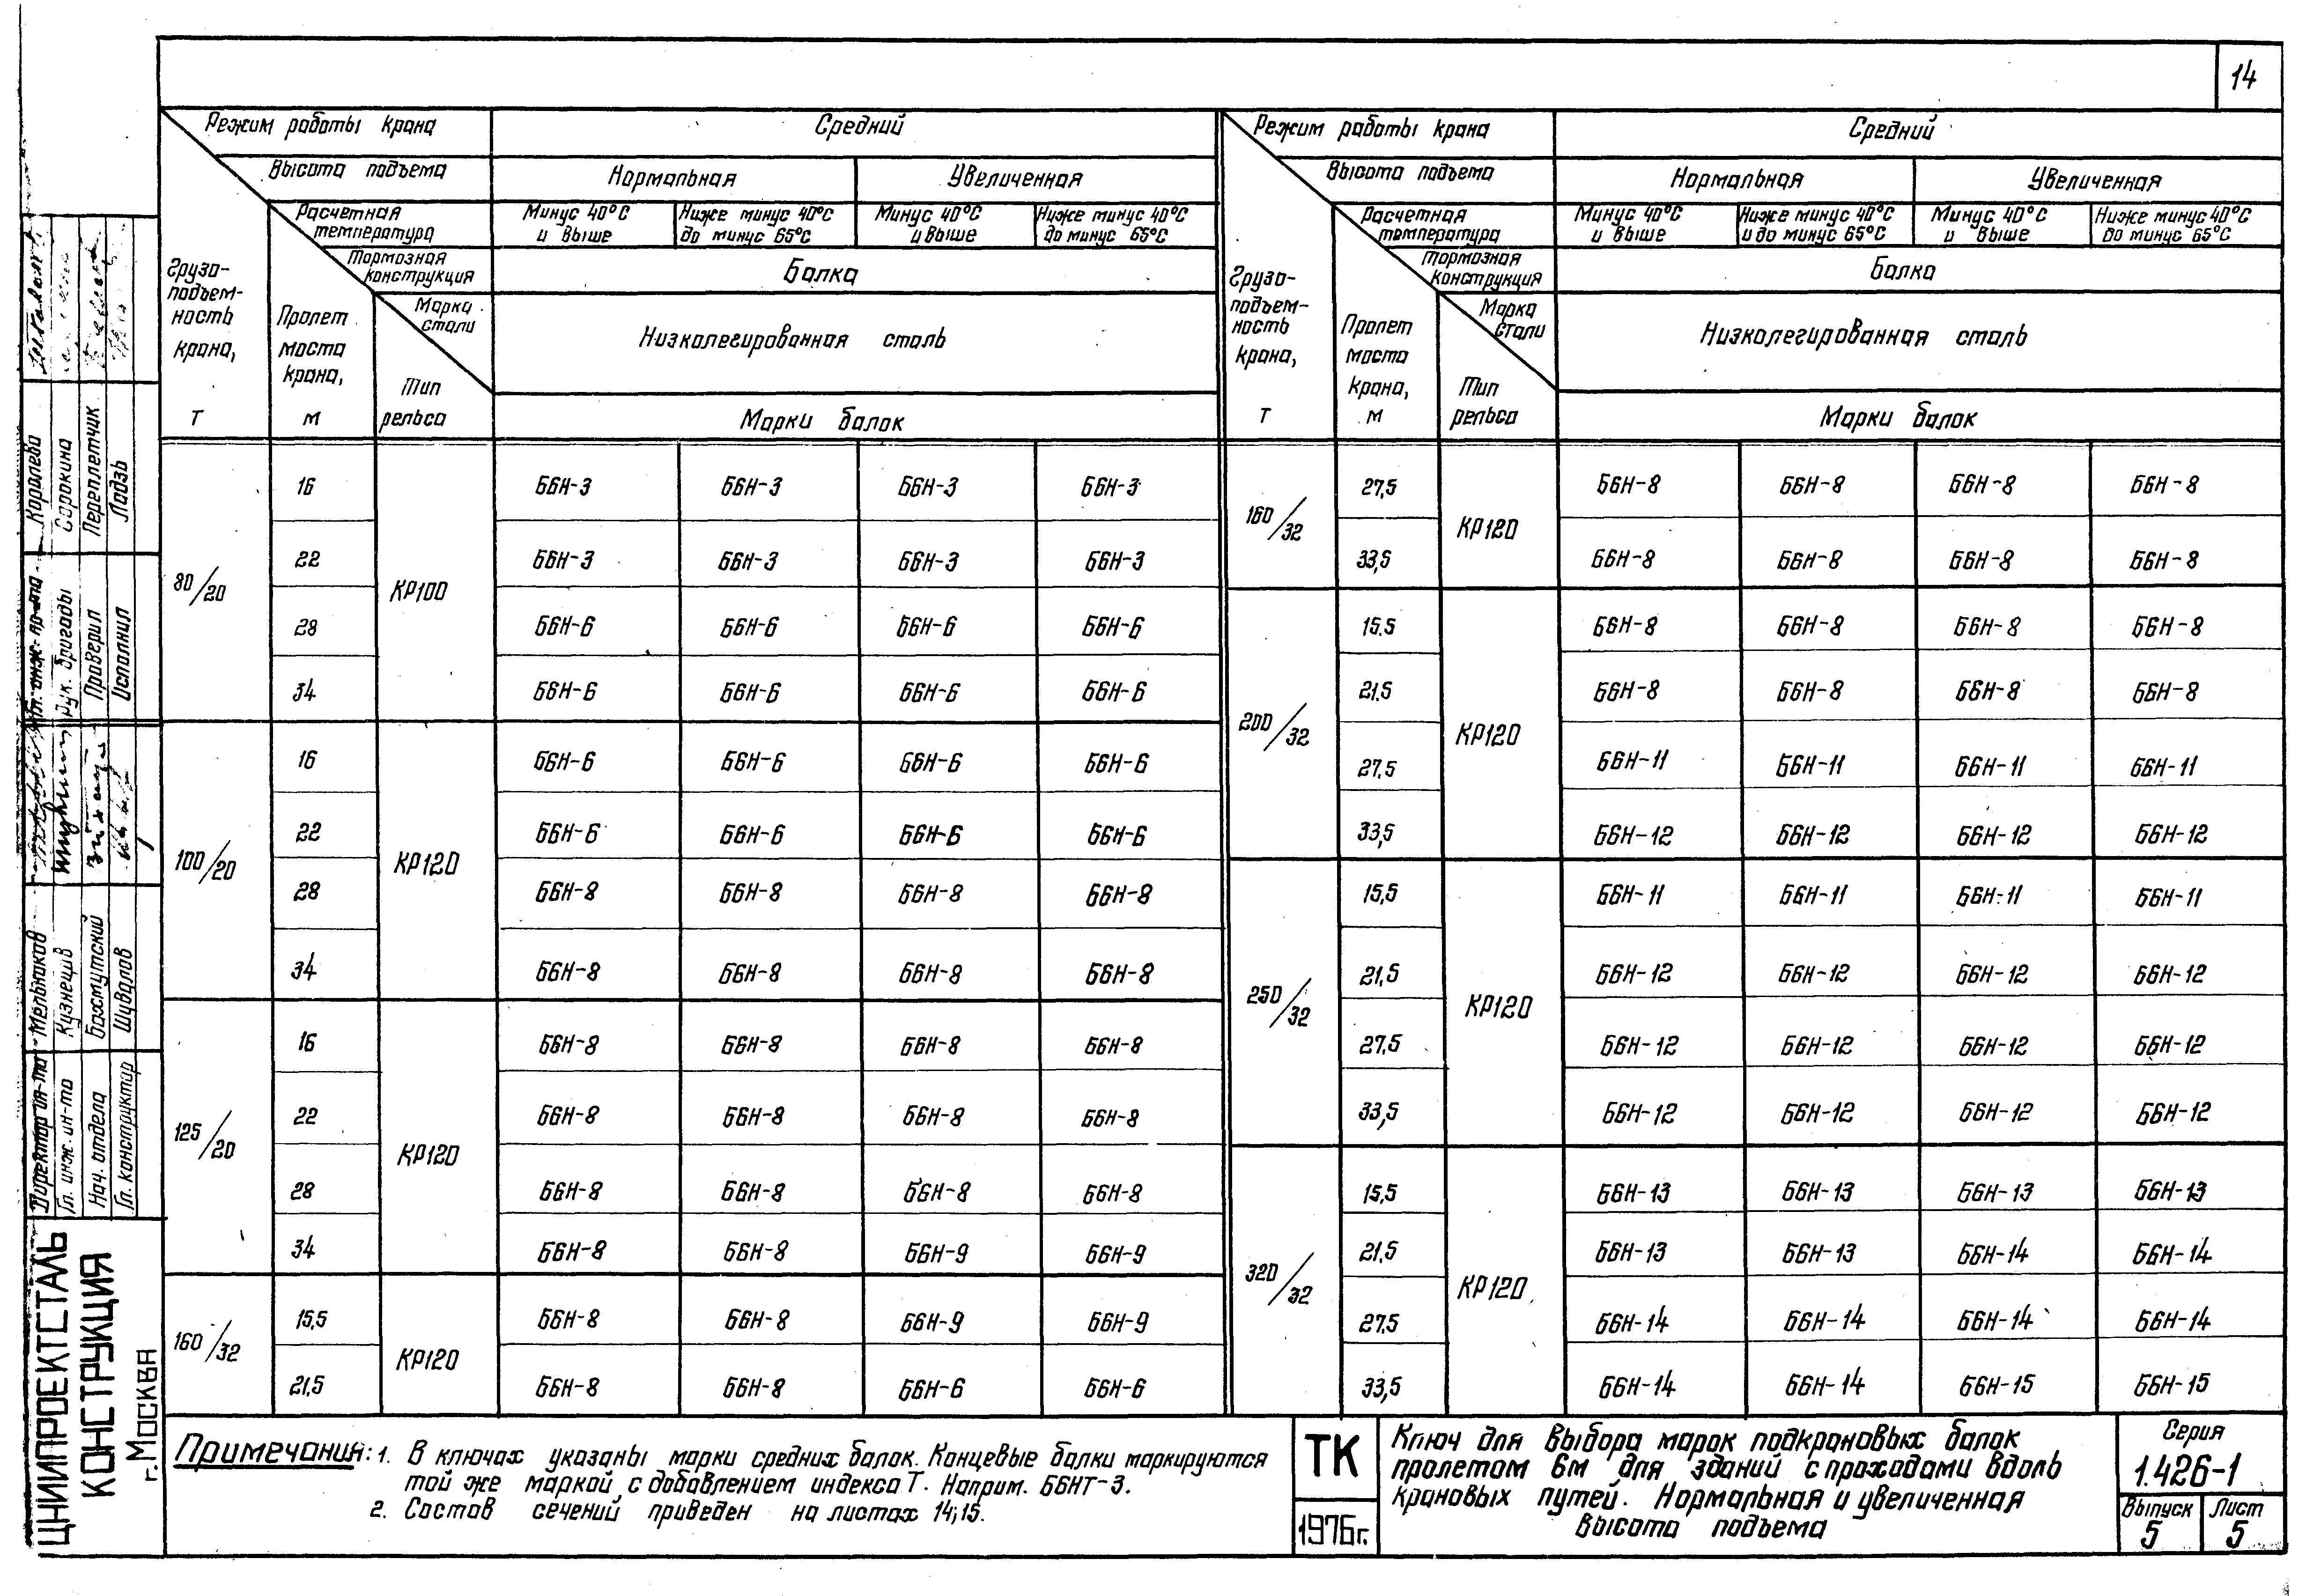 14
Режим работы крана
Средний
Высота подъема
Нормальная
Увеличенная
Расчетная температура
Минус 40°С и выше
Ниже минус 40°С до минус 65°С
Минус 40°С и выше
Ниже минус 40°С до минус 65°С
Тормозная конструкция
Балка
Грузо-
подъем-
ность
крана,
Т
Пролет
моста
крана,
м
Марка стали
Низколегированная сталь
Тип
рельса
Марки балок
80/20
КР100
16 ББН-3 ББН-3 ББН-3 ББН-3
22 ББН-3 ББН-3 ББН-3 ББН-3
28 ББН-6 ББН-6 ББН-6 ББН-6
34 ББН-6 ББН-6 ББН-6 ББН-6
100/20
КР120
16 ББН-6 ББН-6 ББН-6 ББН-6
22 ББН-6 ББН-6 ББН-6 ББН-6
28 ББН-8 ББН-8 ББН-8 ББН-8
34 ББН-8 ББН-8 ББН-8 ББН-8
125/20
КР120
16 ББН-8 ББН-8 ББН-8 ББН-8
22 ББН-8 ББН-8 ББН-8 ББН-8
28 ББН-8 ББН-8 ББН-8 ББН-8
34 ББН-8 ББН-8 ББН-9 ББН-9
160/32
КР120
15,5 ББН-8 ББН-8 ББН-9 ББН-9
21,5 ББН-8 ББН-8 ББН-6 ББН-6
Режим работы крана
Средний
Высота подъема
Нормальная
Увеличенная
Расчетная температура
Минус 40°С и выше
Ниже минус 40°С и до минус 65°С
Минус 40°С и выше
Ниже минус 40°С до минус 65°С
Тормозная конструкция
Балка
Грузо-
подъем-
ность
крана,
Т
Пролет
моста
крана,
м
Марка стали
Низколегированная сталь
Тип
рельса
Марки балок
160/32
КР120
27,5 ББН-8 ББН-8 ББН-8 ББН-8
33,5 ББН-8 ББН-8 ББН-8 ББН-8
200/32
КР120
15,5 ББН-8 ББН-8 ББН-8 ББН-8
21,5 ББН-8 ББН-8 ББН-8 ББН-8
27,5 ББН-11 ББН-11 ББН-11 ББН-11
33,5 ББН-12 ББН-12 ББН-12 ББН-12
250/32
КР120
15,5 ББН-11 ББН-11 ББН-11 ББН-11
21,5 ББН-12 ББН-12 ББН-12 ББН-12
27,5 ББН-12 ББН-12 ББН-12 ББН-12
33,5 ББН-12 ББН-12 ББН-12 ББН-12
320/32
КР120
15,5 ББН-13 ББН-13 ББН-13 ББН-13
21,5 ББН-13 ББН-13 ББН-14 ББН-14
27,5 ББН-14 ББН-14 ББН-14 ББН-14
33,5 ББН-14 ББН-14 ББН-15 ББН-15
Примечания: 1. В ключах указаны марки средних балок. Концевые балки маркируются
той же маркой, с добавлением индекса Т. Наприм. ББНТ-3.
2. Состав сечений приведен на листах 14;15.
ТК
1976г.
Ключ для выбора марок подкрановых балок
пролетом 6м для зданий с проходами вдоль
крановых путей. Нормальная и увеличенная
высота подъема
Серия
1.426-1
Выпуск
5
Лист
5
ЦНИИПРОЕКТСТАЛЬ
КОНСТРУКЦИЯ
г. Москва
Директор ин-та Мельников
Гл. инж. ин-та Кузнецов
Нач. отдела Бахмутский
Гл. конструктор Шувалов
Гл. инж. пр-та Королева
Рук. бригады Сорокина
Проверил Переплетчик
Исполнил Лодзь